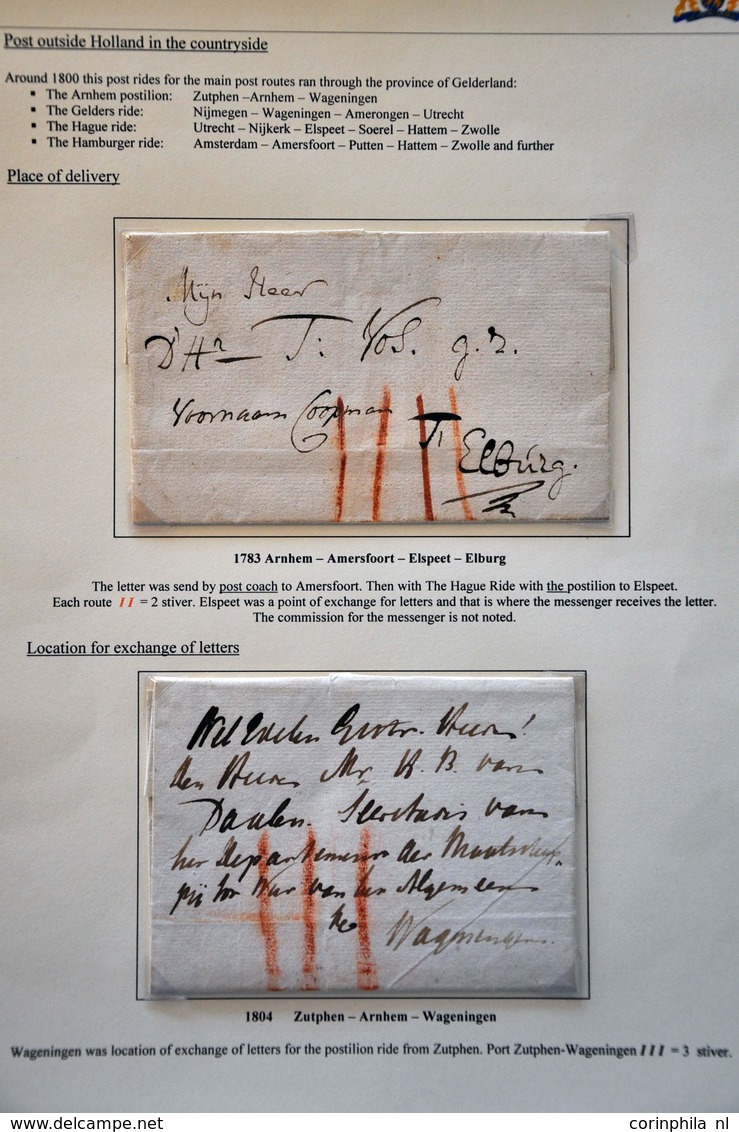 Post outside Holland in the countryside
Around 1800 this post rides for the main post routes ran through the province of Gelderland:
▪ The Arnhem postilion: Zutphen –Arnhem – Wageningen
▪ The Gelders ride: Nijmegen – Wageningen – Amerongen – Utrecht
▪ The Hague ride: Utrecht – Nijkerk – Elspeet – Soerel – Hattem – Zwolle
▪ The Hamburger ride: Amsterdam – Amersfoort – Putten – Hattem – Zwolle and further
Place of delivery
Mijn Heer
D'Hr T: Vos. g. z.
Voornaam Coopman
T:
Elburg.
1783 Arnhem – Amersfoort – Elspeet – Elburg
The letter was send by post coach to Amersfoort. Then with The Hague Ride with the postilion to Elspeet.
Each route II = 2 stiver. Elspeet was a point of exchange for letters and that is where the messenger receives the letter.
The commission for the messenger is not noted.
Location for exchange of letters
Wel Edelen Heer!
den Heere Mr. H. B. van
Daalen. Secretaris van
het Departement der Maatschap-
pij tot Nut van het Algemeen
te Wageningen.
1804 Zutphen – Arnhem – Wageningen
Wageningen was location of exchange of letters for the postilion ride from Zutphen. Port Zutphen-Wageningen III = 3 stiver.
www.delcampe.net
corinphila nl